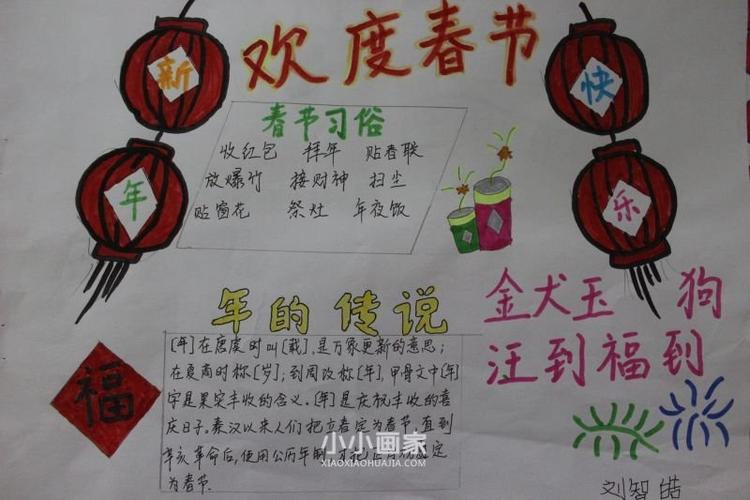 欢度春节
新年
快乐
春节习俗
收红包 拜年 贴春联
放爆竹 接财神 扫尘
贴窗花 祭灶 年夜饭
年的传说
[年]在唐虞时叫[载],是万象更新的意思;
在夏商时称[岁];到周改称[年],甲骨文中[年]
字是果实丰收的含义.[年]是庆祝丰收的喜
庆日子.秦汉以来人们把立春定为春节.直到
辛亥革命后,使用公历年制,才把正月初一定
为春节.
福
金犬玉 狗
汪到福到
刘智皓
小小画家
XIAOXIAOHUAJIA.COM